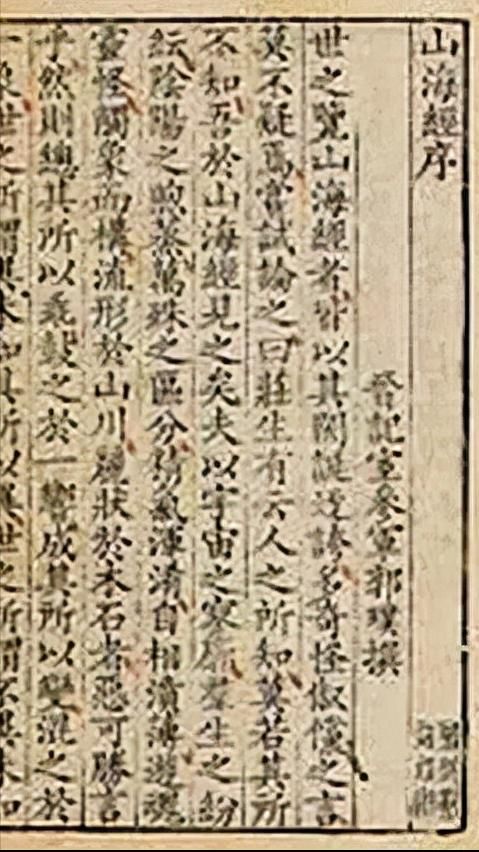 山海經序
晉記室參軍郭璞撰
世之覽山海經者皆以其閎誕迂誇多奇怪俶儻之言
莫不疑焉嘗試論之曰莊生有云人之所知莫若其所
不知吾於山海經見之矣夫以宇宙之寥廓羣生之紛
紜陰陽之煦蒸萬殊之區分精氣渾淆自相濆薄遊魂
靈怪觸象而構流形於山川麗狀於木石者惡可勝言
乎然則總其所以乖鼓之於一響成其所以變混之於
一象世之所謂異未知其所以異世之所謂不異未知